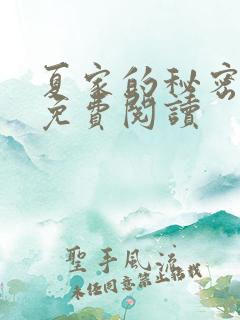 夏家的秘密
免費閱讀
聖手風流
未任同意禁止转載